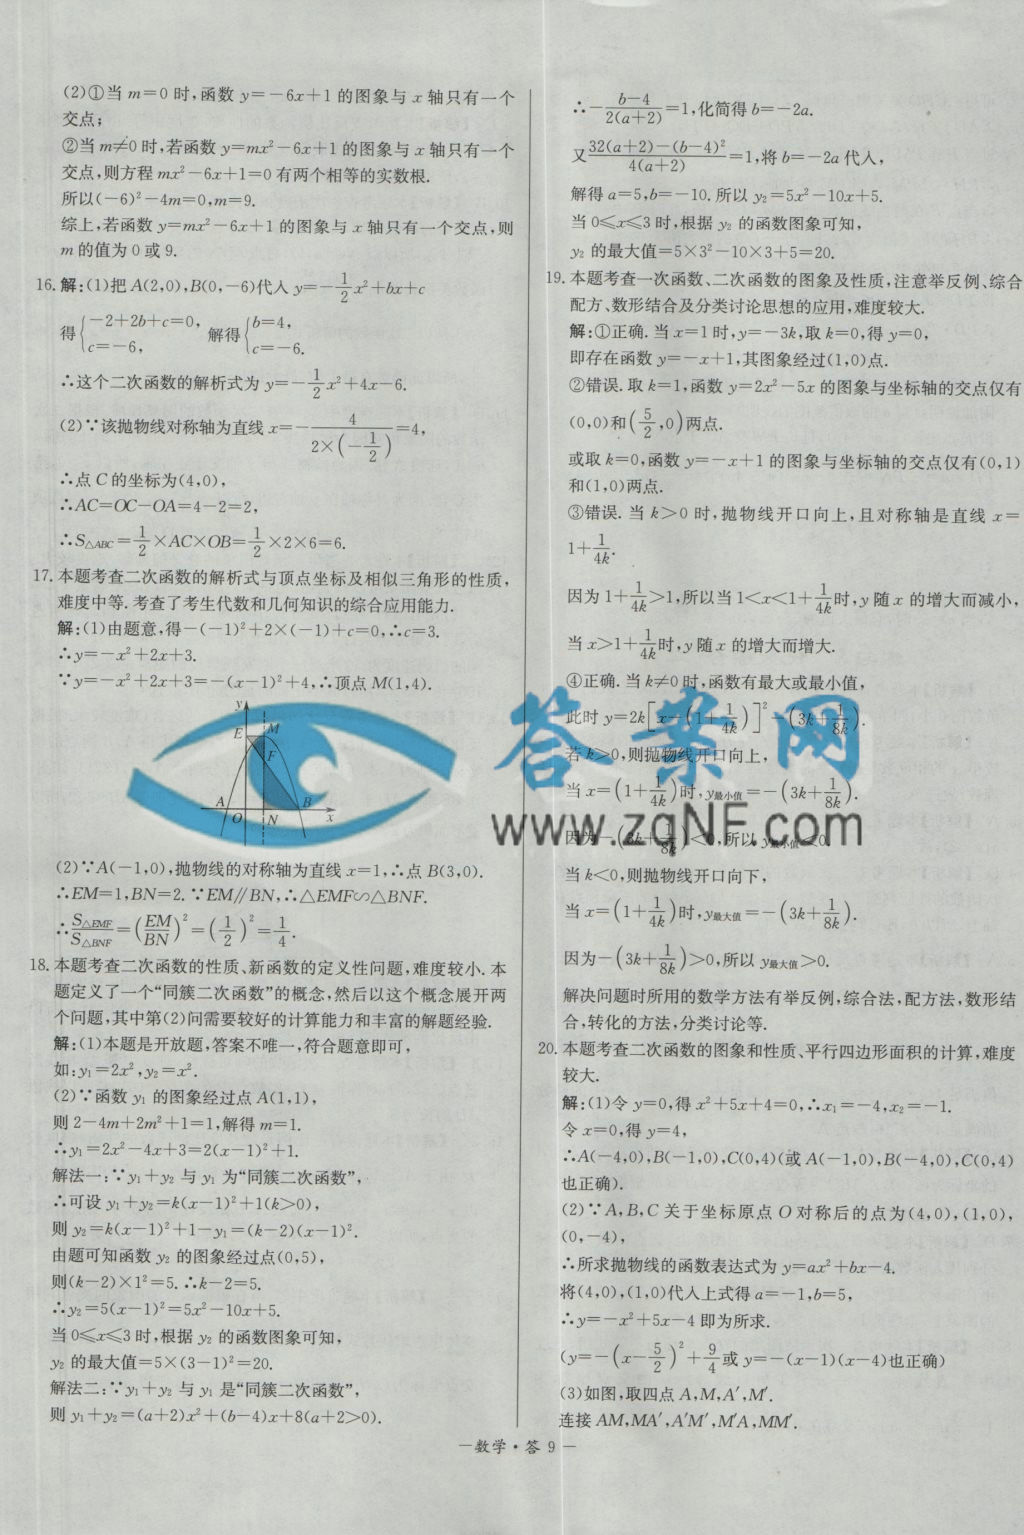 (2)①当 m=0 时,函数 y=-6x+1 的图象与 x 轴只有一个
交点;
②当 m≠0 时,若函数 y=mx²-6x+1 的图象与 x 轴只有一个
交点,则方程 mx²-6x+1=0 有两个相等的实数根.
所以(-6)²-4m=0,m=9.
综上,若函数 y=mx²-6x+1 的图象与 x 轴只有一个交点,则
m 的值为 0 或 9.
16. 解:(1)把 A(2,0),B(0,-6)代入 y=-1/2x²+bx+c
得{-2+2b+c=0, c=-6, 解得{b=4, c=-6.
∴这个二次函数的解析式为 y=-1/2x²+4x-6.
(2)∵该抛物线对称轴为直线 x=-4/(2×(-1/2))=4,
∴点 C 的坐标为(4,0),
∴AC=OC-OA=4-2=2,
∴S△ABC=1/2×AC×OB=1/2×2×6=6.
17. 本题考查二次函数的解析式与顶点坐标及相似三角形的性质,
难度中等. 考查了考生代数和几何知识的综合应用能力.
解:(1)由题意,得-(-1)²+2×(-1)+c=0,∴c=3.
∴y=-x²+2x+3.
∵y=-x²+2x+3=-(x-1)²+4,∴顶点 M(1,4).
y
E M
F
A B
O N x
(2)∵A(-1,0),抛物线的对称轴为直线 x=1,∴点 B(3,0).
∴EM=1,BN=2. ∵EM∥BN,∴△EMF∽△BNF.
∴S△EMF/S△BNF=(EM/BN)²=(1/2)²=1/4.
18. 本题考查二次函数的性质、新函数的定义性问题,难度较小. 本
题定义了一个“同簇二次函数”的概念,然后以这个概念展开两
个问题,其中第(2)问需要较好的计算能力和丰富的解题经验.
解:(1)本题是开放题,答案不唯一,符合题意即可,
如:y₁=2x²,y₂=x².
(2)∵函数 y₁ 的图象经过点 A(1,1),
则 2-4m+2m²+1=1,解得 m=1.
∴y₁=2x²-4x+3=2(x-1)²+1.
解法一:∵y₁+y₂ 与 y₁ 为“同簇二次函数”,
∴可设 y₁+y₂=k(x-1)²+1(k>0),
则 y₂=k(x-1)²+1-y₁=(k-2)(x-1)².
由题可知函数 y₂ 的图象经过点(0,5),
则(k-2)×1²=5. ∴k-2=5.
∴y₂=5(x-1)²=5x²-10x+5.
当 0≤x≤3 时,根据 y₂ 的函数图象可知,
y₂ 的最大值=5×(3-1)²=20.
解法二:∵y₁+y₂ 与 y₁ 是“同簇二次函数”,
则 y₁+y₂=(a+2)x²+(b-4)x+8(a+2>0).
∴-(b-4)/(2(a+2))=1,化简得 b=-2a.
又(32(a+2)-(b-4)²)/(4(a+2))=1,将 b=-2a 代入,
解得 a=5,b=-10. 所以 y₂=5x²-10x+5.
当 0≤x≤3 时,根据 y₂ 的函数图象可知,
y₂ 的最大值=5×3²-10×3+5=20.
19. 本题考查一次函数、二次函数的图象及性质,注意举反例、综合
配方、数形结合及分类讨论思想的应用,难度较大.
解:①正确. 当 x=1 时,y=-3k,取 k=0,得 y=0,
即存在函数 y=-x+1,其图象经过(1,0)点.
②错误. 取 k=1,函数 y=2x²-5x 的图象与坐标轴的交点仅有
(0,0)和(5/2,0)两点.
或取 k=0,函数 y=-x+1 的图象与坐标轴的交点仅有(0,1)
和(1,0)两点.
③错误. 当 k>0 时,抛物线开口向上,且对称轴是直线 x=
1+1/4k.
因为 1+1/4k>1,所以当 1<x<1+1/4k时,y 随 x 的增大而减小,
当 x>1+1/4k时,y 随 x 的增大而增大.
④正确. 当 k≠0 时,函数有最大或最小值,
此时 y=2k[x-(1+1/4k)]²-(3k+1/8k).
若 k>0,则抛物线开口向上,
当 x=(1+1/4k)时,y最小值=-(3k+1/8k).
因为-(3k+1/8k)<0,所以 y最小值<0.
当 k<0,则抛物线开口向下,
当 x=(1+1/4k)时,y最大值=-(3k+1/8k).
因为-(3k+1/8k)>0,所以 y最大值>0.
解决问题时所用的数学方法有举反例,综合法,配方法,数形结
合,转化的方法,分类讨论等.
20. 本题考查二次函数的图象和性质、平行四边形面积的计算,难度
较大.
解:(1)令 y=0,得 x²+5x+4=0,∴x₁=-4,x₂=-1.
令 x=0,得 y=4,
∴A(-4,0),B(-1,0),C(0,4)(或 A(-1,0),B(-4,0),C(0,4)
也正确).
(2)∵A,B,C 关于坐标原点 O 对称后的点为(4,0),(1,0),
(0,-4),
∴所求抛物线的函数表达式为 y=ax²+bx-4.
将(4,0),(1,0)代入上式得 a=-1,b=5,
∴y=-x²+5x-4 即为所求.
(y=-(x-5/2)²+9/4或 y=-(x-1)(x-4)也正确)
(3)如图,取四点 A,M,A′,M′.
连接 AM,MA′,A′M′,M′A,MM′.
答案网
www.zqNF.com
—数学·答 9—